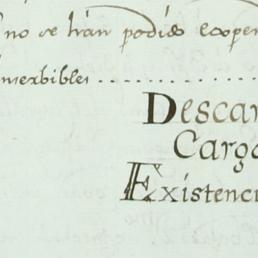 no se han podido cooper
inserbibles ..............
Descar
Carga
Existenci